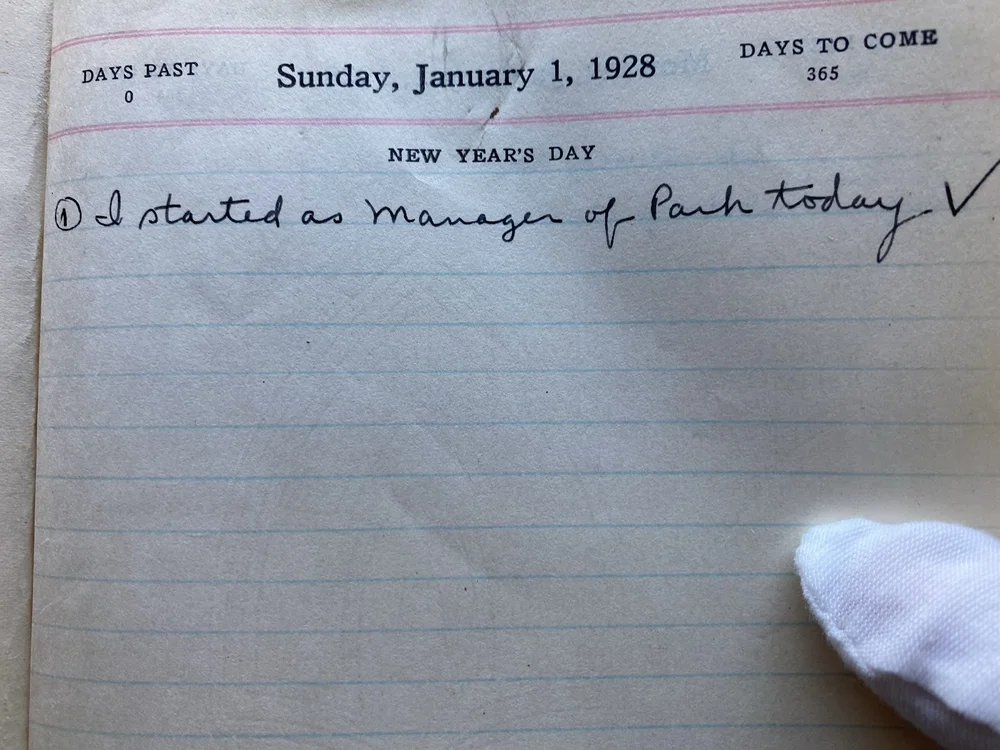 DAYS PAST
0
Sunday, January 1, 1928
DAYS TO COME
365
NEW YEAR'S DAY
① I started as Manager of Park today. ✓